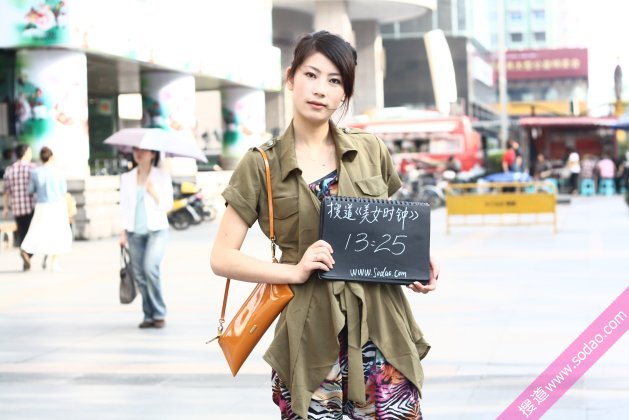 搜道《美女时钟》
13:25
www.sodao.com
搜道 www.sodao.com